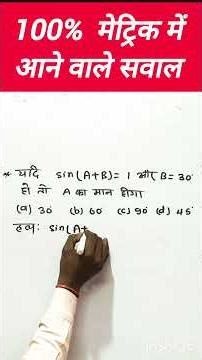 100% मेट्रिक में
आने वाले सवाल
* यदि sin(A+B)=1 और B=30°
हो तो A का मान होगा
(a) 30° (b) 60° (c) 90° (d) 45°
हल: sin(A+